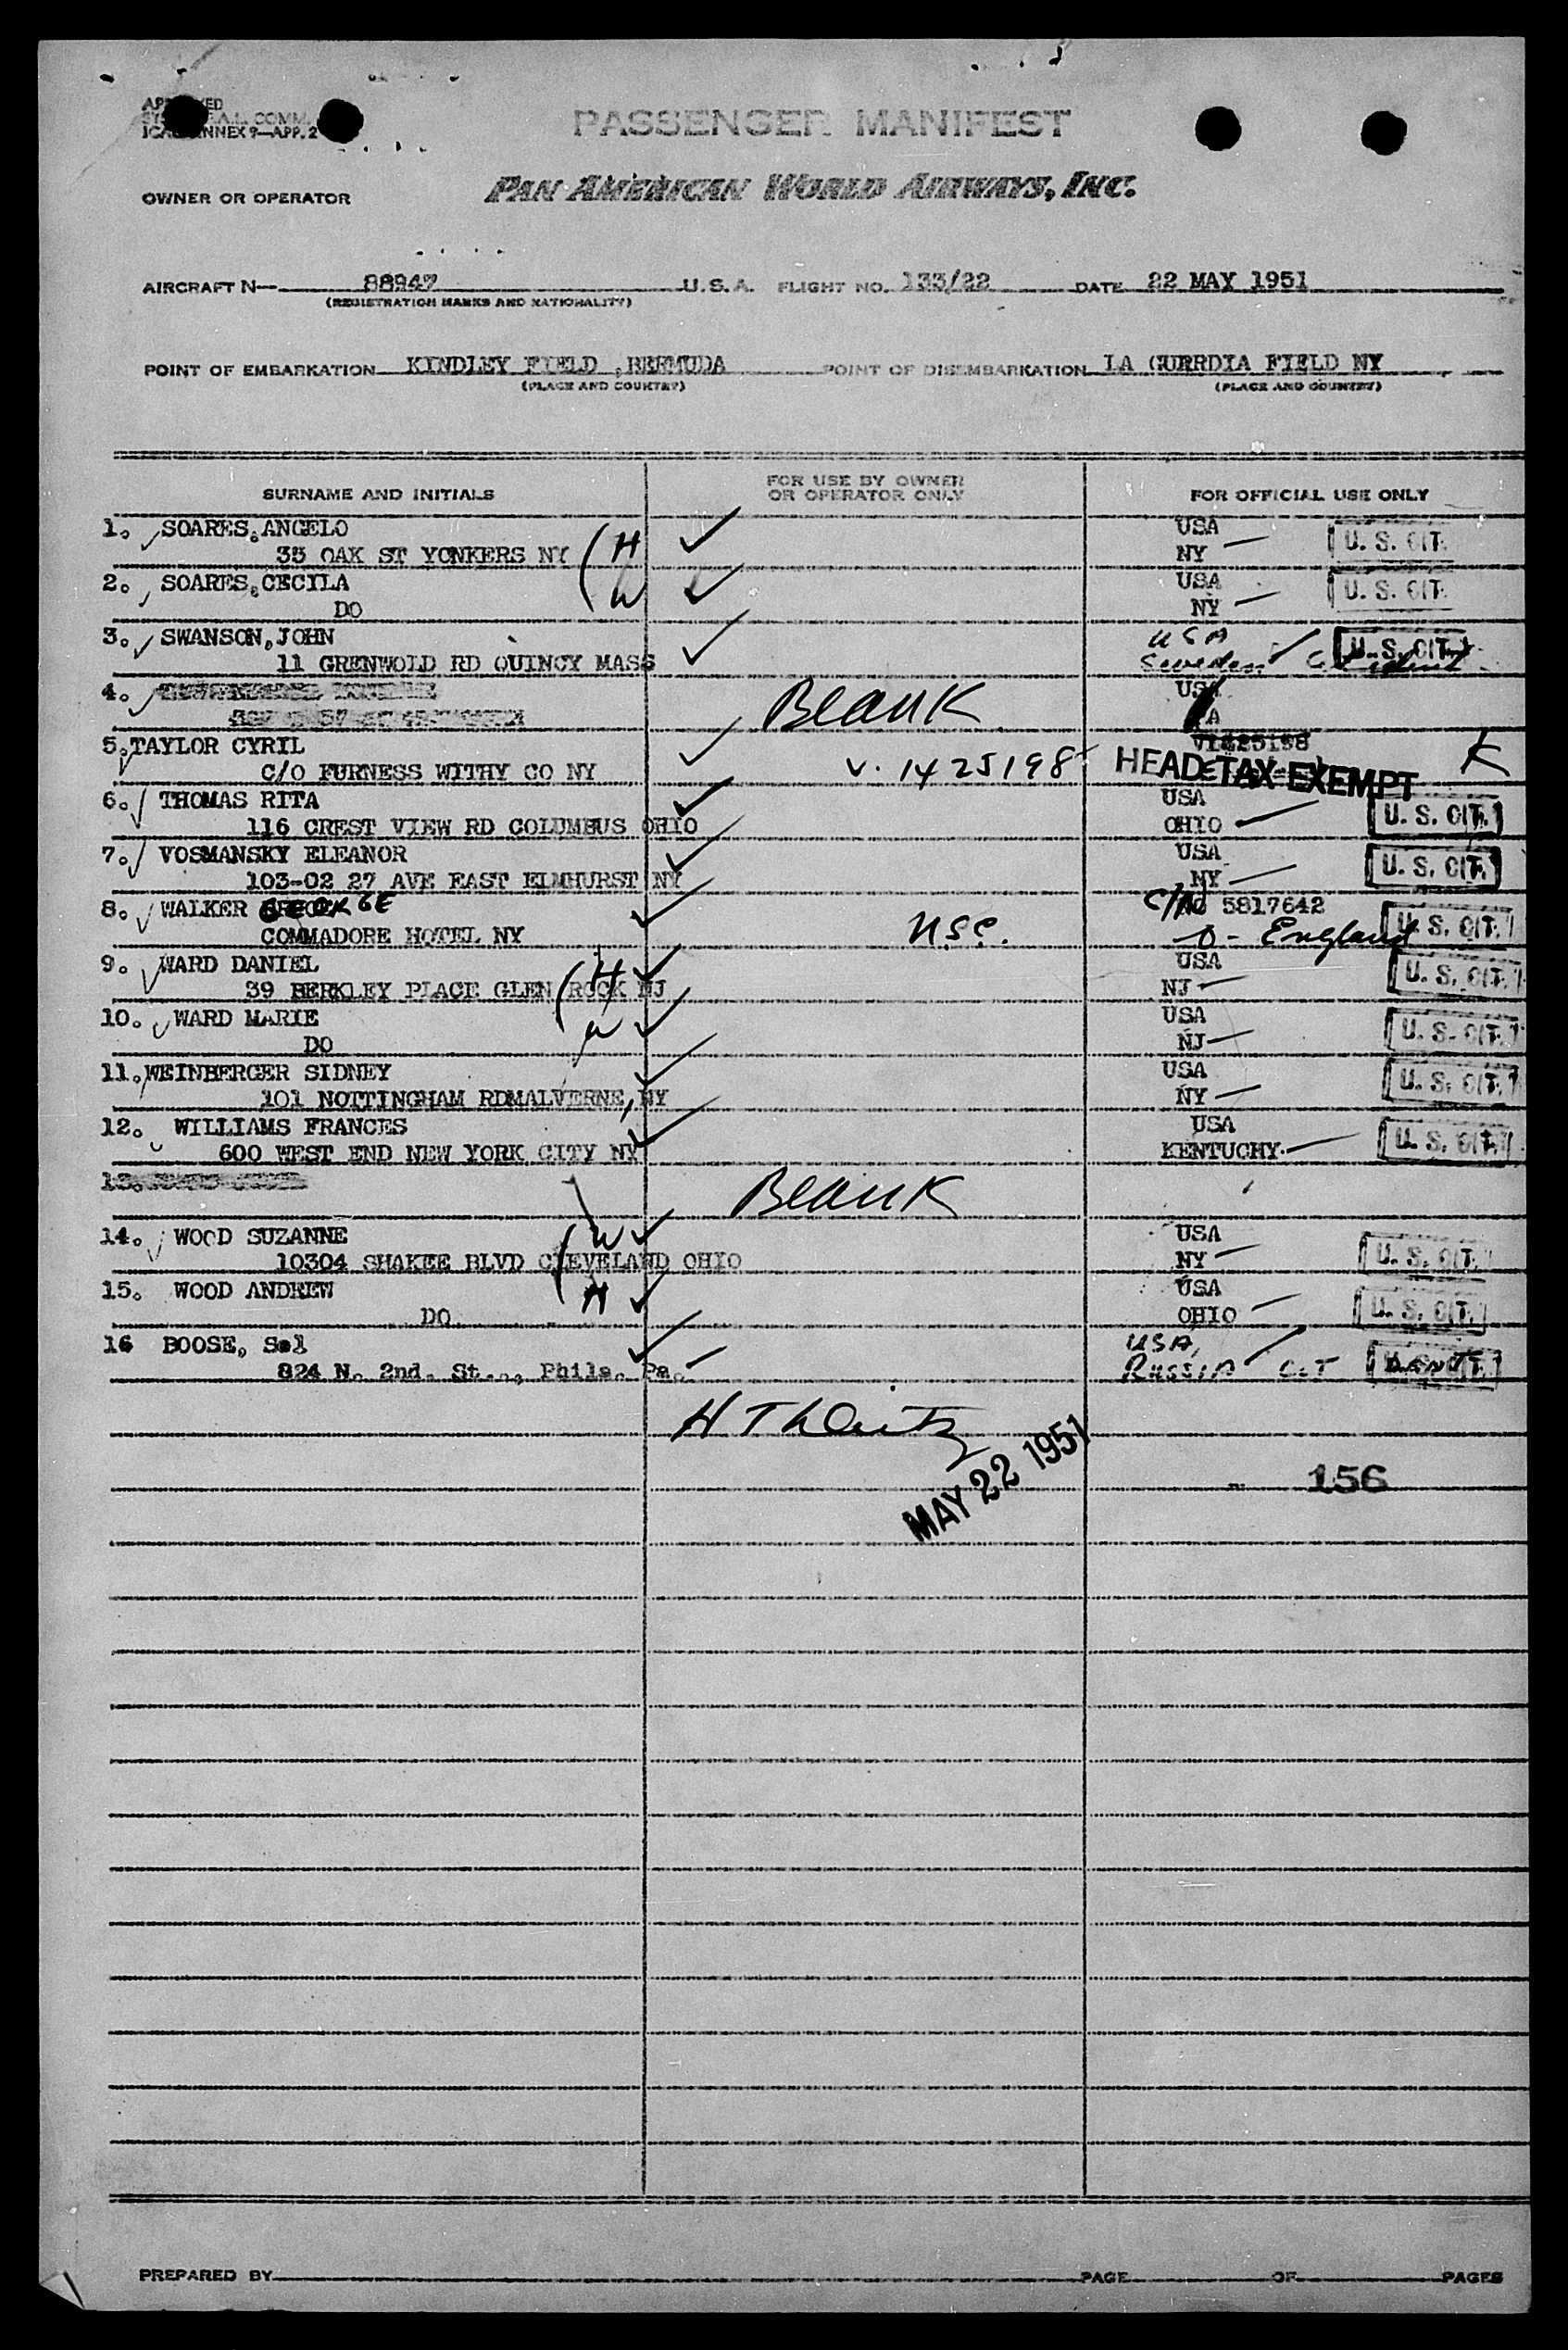 PASSENGER MANIFEST
ANNEX 9—APP. 2
OWNER OR OPERATOR PAN AMERICAN WORLD AIRWAYS, INC.
AIRCRAFT N— 88947 U.S.A. FLIGHT NO. 133/22 DATE 22 MAY 1951
(REGISTRATION MARKS AND NATIONALITY)
POINT OF EMBARKATION KINDLEY FIELD ,BERMUDA POINT OF DISEMBARKATION LA GURRDIA FIELD NY
(PLACE AND COUNTRY) (PLACE AND COUNTRY)
SURNAME AND INITIALS FOR USE BY OWNER OR OPERATOR ONLY FOR OFFICIAL USE ONLY
1. SOARES,ANGELO USA
35 OAK ST YONKERS NY H NY U. S. CIT.
2. SOARES,CECILA USA U. S. CIT.
DO W NY
3. SWANSON,JOHN USA U. S. CIT.
11 GRENWOLD RD QUINCY MASS Sweden
4. Blank USA
5.TAYLOR CYRIL V1425198
C/O FURNESS WITHY CO NY V. 1425198 HEAD TAX EXEMPT K
6. THOMAS RITA USA
116 CREST VIEW RD COLUMBUS OHIO OHIO U. S. CIT.
7. VOSMANSKY ELEANOR USA
103-02 27 AVE EAST ELMHURST NY NY U. S. CIT.
8. WALKER GEORGE C/NO 5817642
COMMADORE HOTEL NY U.S.C. England U. S. CIT.
9. WARD DANIEL H USA
39 BERKLEY PLACE GLEN ROCK NJ NJ U. S. CIT.
10. WARD MARIE W USA
DO NJ U. S. CIT.
11.WEINBERGER SIDNEY USA
101 NOTTINGHAM RDMALVERNE,NY NY U. S. CIT.
12. WILLIAMS FRANCES USA
600 WEST END NEW YORK CITY NY KENTUCHY. U. S. CIT.
13. Blank
14. WOOD SUZANNE W USA
10304 SHAKEE BLVD CLEVELAND OHIO NY U. S. CIT.
15. WOOD ANDREW H USA
DO OHIO U. S. CIT.
16 BOOSE, Sol USA,
824 N. 2nd. St.., Phila. Pa. RUSSIA CIT
MAY 22 1951
156
PREPARED BY PAGE OF PAGES